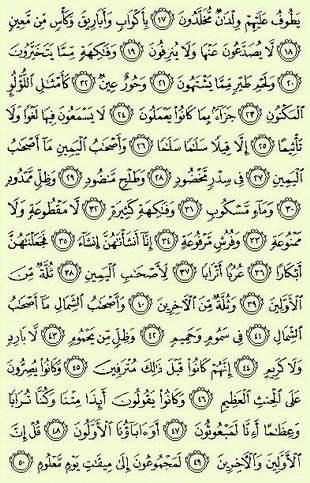 يَطُوفُ عَلَيْهِمْ وِلْدَٰنٌ مُّخَلَّدُونَ ١٧ بِأَكْوَابٍ وَأَبَارِيقَ وَكَأْسٍ مِّن مَّعِينٍ
١٨ لَّا يُصَدَّعُونَ عَنْهَا وَلَا يُنزِفُونَ ١٩ وَفَٰكِهَةٍ مِّمَّا يَتَخَيَّرُونَ
٢٠ وَلَحْمِ طَيْرٍ مِّمَّا يَشْتَهُونَ ٢١ وَحُورٌ عِينٌ ٢٢ كَأَمْثَٰلِ ٱللُّؤْلُؤِ
ٱلْمَكْنُونِ ٢٣ جَزَآءًۢ بِمَا كَانُوا۟ يَعْمَلُونَ ٢٤ لَا يَسْمَعُونَ فِيهَا لَغْوًا وَلَا
تَأْثِيمًا ٢٥ إِلَّا قِيلًا سَلَٰمًا سَلَٰمًا ٢٦ وَأَصْحَٰبُ ٱلْيَمِينِ مَآ أَصْحَٰبُ
ٱلْيَمِينِ ٢٧ فِى سِدْرٍ مَّخْضُودٍ ٢٨ وَطَلْحٍ مَّنضُودٍ ٢٩ وَظِلٍّ مَّمْدُودٍ
٣٠ وَمَآءٍ مَّسْكُوبٍ ٣١ وَفَٰكِهَةٍ كَثِيرَةٍ ٣٢ لَّا مَقْطُوعَةٍ وَلَا
مَمْنُوعَةٍ ٣٣ وَفُرُشٍ مَّرْفُوعَةٍ ٣٤ إِنَّآ أَنشَأْنَٰهُنَّ إِنشَآءً ٣٥ فَجَعَلْنَٰهُنَّ
أَبْكَارًا ٣٦ عُرُبًا أَتْرَابًا ٣٧ لِّأَصْحَٰبِ ٱلْيَمِينِ ٣٨ ثُلَّةٌ مِّنَ
ٱلْأَوَّلِينَ ٣٩ وَثُلَّةٌ مِّنَ ٱلْءَاخِرِينَ ٤٠ وَأَصْحَٰبُ ٱلشِّمَالِ مَآ أَصْحَٰبُ
ٱلشِّمَالِ ٤١ فِى سَمُومٍ وَحَمِيمٍ ٤٢ وَظِلٍّ مِّن يَحْمُومٍ ٤٣ لَّا بَارِدٍ
وَلَا كَرِيمٍ ٤٤ إِنَّهُمْ كَانُوا۟ قَبْلَ ذَٰلِكَ مُتْرَفِينَ ٤٥ وَكَانُوا۟ يُصِرُّونَ
عَلَى ٱلْحِنثِ ٱلْعَظِيمِ ٤٦ وَكَانُوا۟ يَقُولُونَ أَئِذَا مِتْنَا وَكُنَّا تُرَابًا
وَعِظَٰمًا أَءِنَّا لَمَبْعُوثُونَ ٤٧ أَوَءَابَآؤُنَا ٱلْأَوَّلُونَ ٤٨ قُلْ إِنَّ
ٱلْأَوَّلِينَ وَٱلْءَاخِرِينَ ٤٩ لَمَجْمُوعُونَ إِلَىٰ مِيقَٰتِ يَوْمٍ مَّعْلُومٍ ٥٠